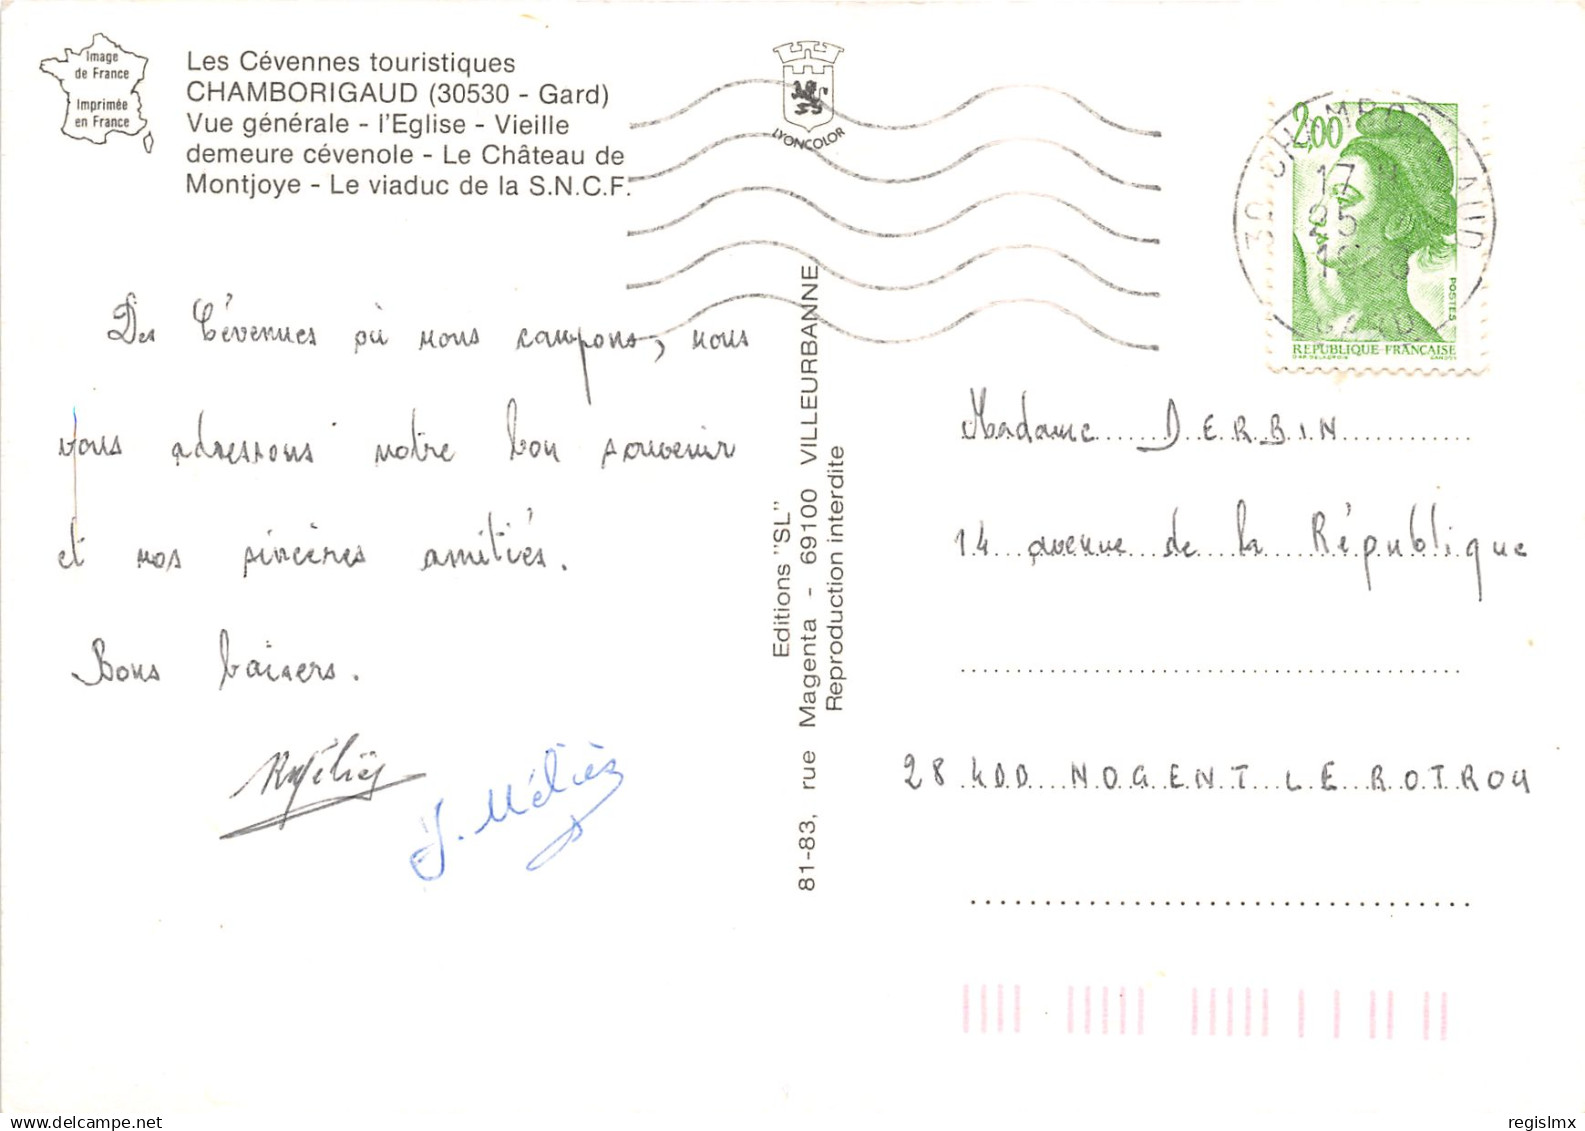 Image
de France
Imprimée
en France
Les Cévennes touristiques
CHAMBORIGAUD (30530 - Gard)
Vue générale - l'Eglise - Vieille
demeure cévenole - Le Château de
Montjoye - Le viaduc de la S.N.C.F.
LYONCOLOR
2,00
POSTES
REPUBLIQUE FRANÇAISE
30 CHAMBORIGAUD
17 H
25
GARD
Des Cévennes où nous campons, nous
vous adressons notre bon souvenir
et nos sincères amitiés.
Bons baisers.
J. Méliès
Editions "SL"
81-83, rue Magenta - 69100 VILLEURBANNE
Reproduction interdite
Madame DERBIN
14 avenue de la République
28 400 NOGENT LE ROTROU
regislmx